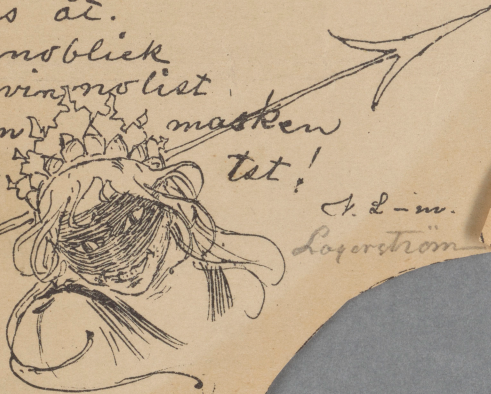 s åt.
noblick
vinnolist
masken
tst!
L-m.
Lagerström